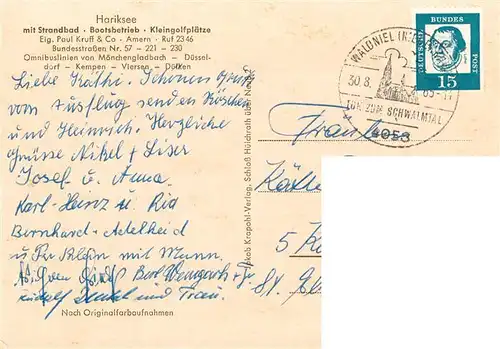 Hariksee
mit Strandbad · Bootsbetrieb · Kleingolfplätze
Eig. Paul Kruff & Co · Amern · Ruf 2346
Bundesstraßen Nr. 57 – 221 – 230
Omnibuslinien von Mönchengladbach – Düssel-
dorf – Kempen – Viersen – Dülken
Liebe Käthi. Schönen Gruß
vom Ausflug senden Röschen
und Heinrich. Herzliche
Grüsse Nikel + Liser
Josef u. Anna
Karl-Heinz u. Ria
Bernhard - Adelheid
u. Frau Klein mit Mann.
Rudolf und Frau.
Nach Originalfarbaufnahmen
Jakob Krapohl-Verlag, Schloß Hülchrath über Neuß
WALDNIEL
30.8.
TOR ZUM SCHWALMTAL
4056
DEUTSCHE
BUNDES
POST
15
Fräulein
Käthe
5 K